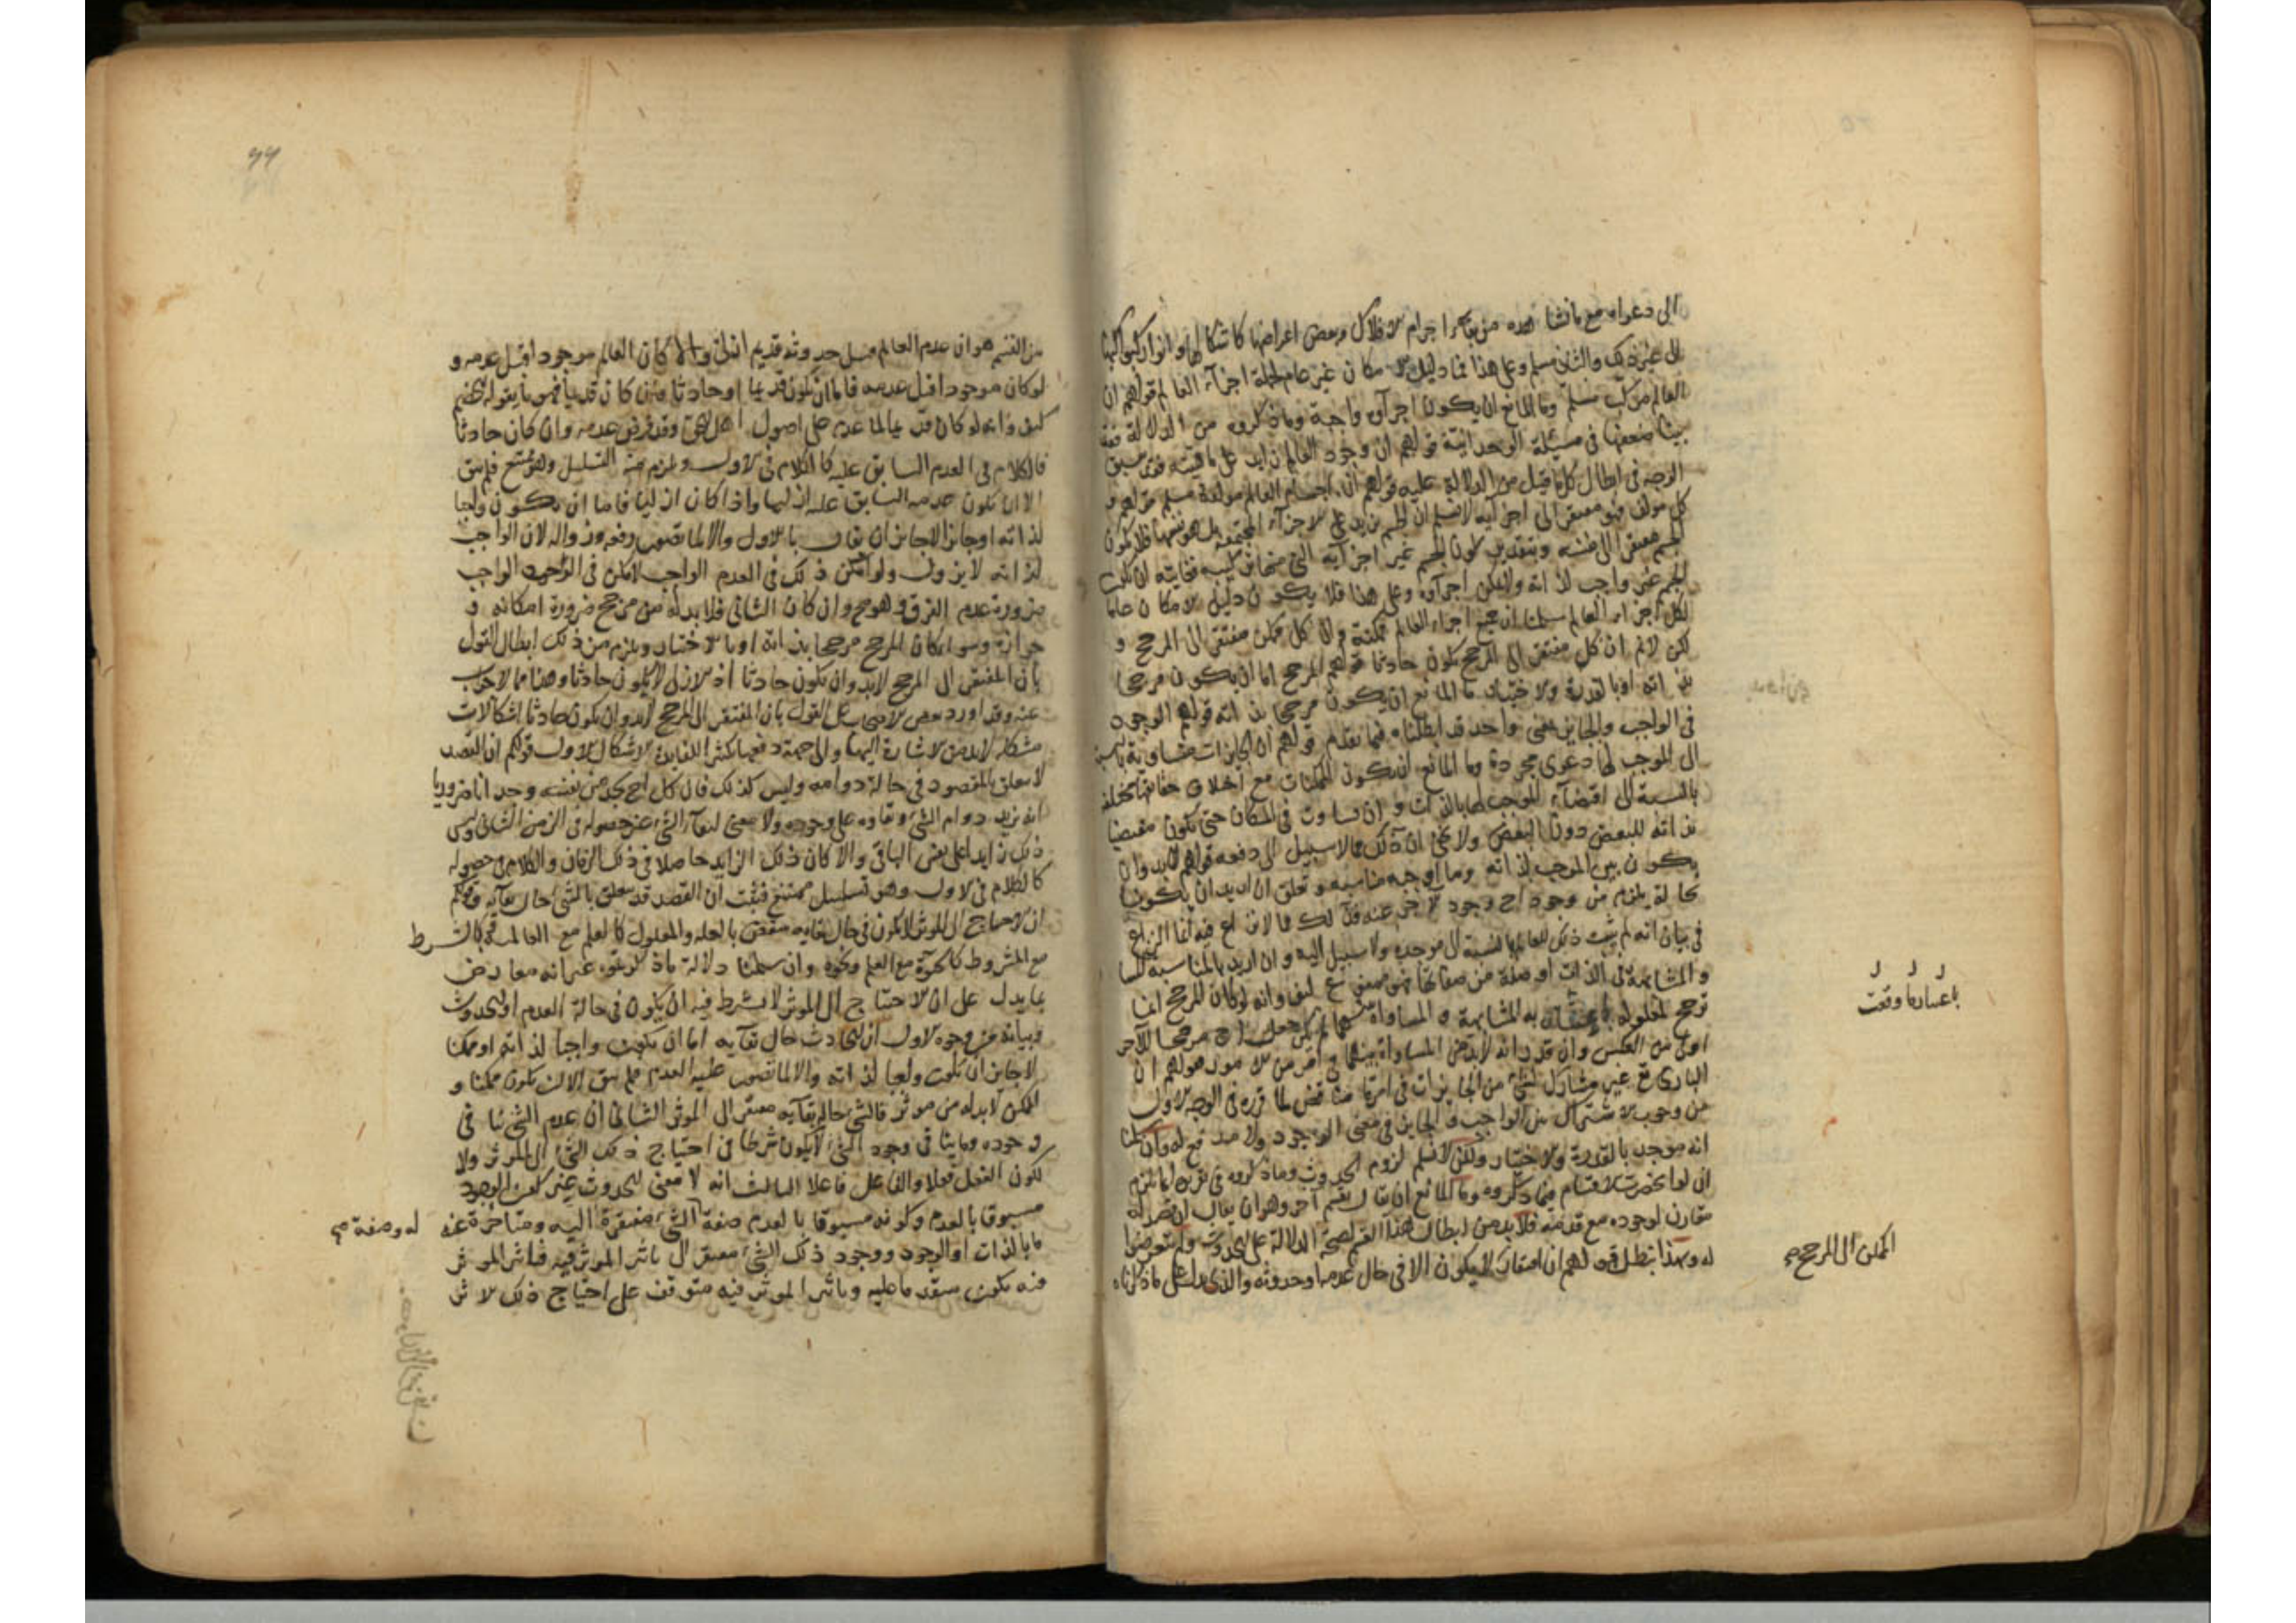 الى دعواه مع ما نشاهده من اجرام الافلاك وبعض اعراضها كاشكالها وانوار كواكبها
الى غير ذلك والثانى مسلم وعلى هذا فما دليل الامكان غير عام لجملة اجزآء العالم قولهم ان
العالم مركب مسلم وما المانع ان يكون اجزآؤه واجبة وما ذكروه من الدلالة فقد
بينا ضعفها فى مسئلة الوحدانية قولهم ان وجود العالم زايد على ماهيته فقد سبق
الوجه فى ابطال كل ما قيل من الدلالة عليه قولهم ان اجسام العالم مولفة مسلم قولهم و
كل مولف فهو مفتقر الى اجزآيه لا نسلم ان الجسم يزيد على الاجزآء المجتمعة بل هو نفسها فلا يكون
الجسم مفتقرا الى نفسه وبتقدير كون الجسم غير اجزآيه التى منها تركيبه فغايته ان يكون
الجسم غير واجب لذاته ولا يمكن اجزآؤه وعلى هذا فلا يكون دليل الامكان عاما
لكل اجزاء العالم سلمنا ان جميع اجزاء العالم ممكنة وان كل ممكن مفتقر الى المرجح و
لكن لا نم ان كل مفتقر الى المرجح يكون حادثا قولهم المرجح اما ان يكون مرجحا
بذاته او بالقدرة والاختيار ما المانع ان يكون مرجحا بذاته قولهم الوجود
فى الواجب والجايز بمعنى واحد قد ابطلناه فيما تقدم قولهم ان الجايزات متساوية بالنسبة
الى الموجب لها دعوى مجردة وما المانع ان تكون الممكنات مع اختلاف حقايقها مختلفة
بالنسبة الى اقتضآء الموجب لها بالذات وان تساوت فى الامكان حتى يكون مقتضيا
بذاته للبعض دون البعض ولا يخفى ان ذلك مما لا سبيل الى دفعه قولهم لا بد وان
يكون بين الموجب لذاته وما اوجبه مناسبة وتعلق ان اريد ان يكونا
بحالة يلزم من وجود احدهما وجود الاخر عنه فذلك مما لا نزاع فيه انما النزاع
فى بيان انه لم يثبت ذلك للعالم بالنسبة الى موجده ولا سبيل اليه وان اريد بالمناسبة
والمشابهة فى الذات او صفة من صفاتها فهو ممتنع
ترجح المعلول به المشابهة و المساواة بينهما لم يكن جعل احدهما مرجحا للاخر
اولى من العكس وان قدر انه لا بد من المساواة بينهما فى امر من الامور فقولهم ان
البارى تع غير مشارك لشئ من الجايزات فى امر ما مناقض لما قرره فى الوجه الاول
من وجوب الاشتراك بين الواجب والجايز فى معنى الوجود ولا مدفع له وان سلمنا
انه موجد بالقدرة والاختيار ولكن لا نسلم لزوم الحدوث وما ذكروه فى تقريره انما يلزم
ان لو انحصرت الاقسام فيما ذكروه وما المانع ان يقال بقسم آخر وهو ان يقال ان قصده
مقارن لوجوده مع قدمه فلا بد من ابطال هذا القسم لصحة الدلالة على الحدوث ولم يتعرضوا
له وبهذا يبطل قولهم ان افتقار لا يكون الا فى حال عدمه او حدوثه والذى يدل على ما ذكرناه
باعتبارها وقعت
الممكن الى المرجح صح
من القسم هو ان عدم العالم قبل حدوثه قديم ازلى والا كان العالم موجودا قبل عدمه و
لو كان موجودا قبل عدمه فاما ان يكون قديما او حادثا فان كان قديما فهو ما يقوله الخصم
كيف وانه لو كان قديما لما عدم على اصول اهل الحق وقد فرض عدمه وان كان حادثا
فالكلام فى العدم السابق عليه كالكلام فى الاول ويلزم منه التسلسل وهو ممتنع فلم يبق
الا ان يكون عدمه السابق عليه ازليا واذا كان ازليا فاما ان يكون واجبا
لذاته او جايزا لا جايز ان يقال بالاول والا لما تصور رفعه وزواله لان الواجب
لذاته لا يزول ولو امكن ذلك فى العدم الواجب لامكن فى الوجود الواجب
ضرورة عدم الفرق وهو مح وان كان الثانى فلا بد له من مرجح ضرورة امكانه و
جوازه وسوا كان المرجح مرجحا بذاته او بالاختيار ويلزم من ذلك ابطال القول
بان المفتقر الى المرجح لا بد وان يكون حادثا اذ الازلى لا يكون حادثا وهذا مما لا جواب
عنه وقد اورد بعض الاصحاب على القول بان المفتقر الى المرجح لا بد وان يكون حادثا اشكالات
مشكلة لا بد من الاشارة اليها والى جهة دفعها تكثيرا للفايدة الاشكال الاول قولهم ان القصد
لا يتعلق بالمقصود فى حالة دوامه وليس كذلك فان كل احد يجد من نفسه وجدانا ضروريا
انه يريد دوام الشئ وبقاوه على وجوده ولا معنى لبقآء الشئ غير حصوله فى الزمن الثانى وليس
ذلك زايدا على نفس الباقى والا كان ذلك الزايد حاصلا فى ذلك الزمان والكلام فى حصوله
كالكلام فى الاول وهو تسلسل ممتنع فثبت ان القصد قد يتعلق بالشئ حال بقآيه وقولكم
ان الاحتياج الى الموثر لا يكون فى حال بقايه منتقض بالعلة والمعلول كالعلم مع العالمية وكالشرط
مع المشروط كالحيوة مع العلم ونحوه وان سلمنا دلالة ما ذكرتموه غير انه معارض
بما يدل على ان الاحتياج الى الموثر لا يشترط فيه ان يكون فى حالة العدم او الحدوث
وبيانه من وجوه الاول ان الحادث حال بقآيه اما ان يكون واجبا لذاته او ممكنا
لا جايز ان يكون واجبا لذاته والا لما تصور عليه العدم فلم يبق الا ان يكون ممكنا و
الممكن لا بد له من موثر فالشئ حالة بقآيه مفتقر الى الموثر الثانى ان عدم الشئ ينافى
وجوده وما ينافى وجود الشئ لا يكون شرطا فى احتياج ذلك الشئ الى الموثر ولا
لكون الفعل فعلا والفاعل فاعلا الثالث انه لا معنى للحدوث غير كون الوجود
مسبوقا بالعدم وكونه مسبوقا بالعدم صفة الشئ مفتقرة اليه ومتاخرة عنه
اما بالذات او الوجود ووجود ذلك الشئ مفتقر الى تاثير الموثر فيه فتاثير الموثر
فيه يكون متقدما عليه وتاثير الموثر فيه متوقف على احتياج ذلك الاثر
له وصفة صح